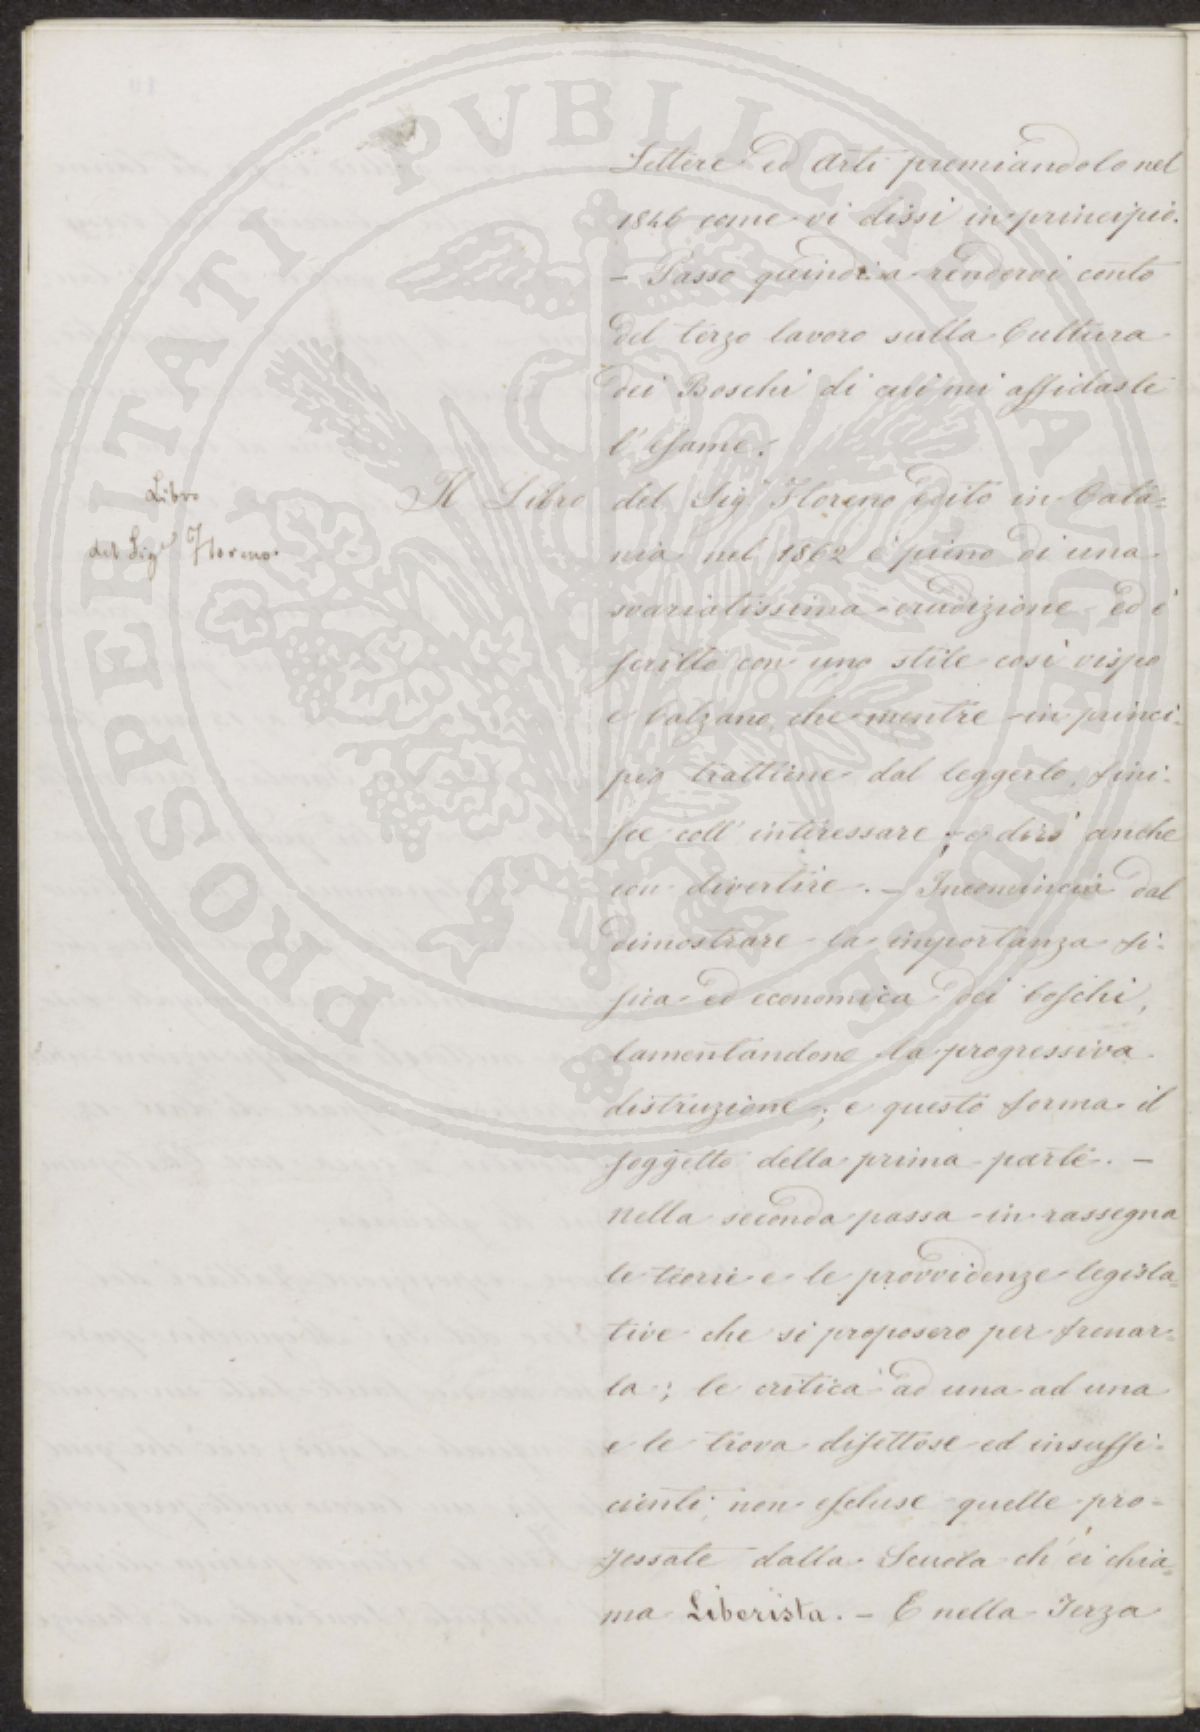 Lettere ed Arti premiandolo nel
1846 come vi dissi in principio.
– Passo quindi a rendervi conto
del terzo lavoro sulla Cultura
dei Boschi di cui mi affidaste
l'esame.
Libro
del Sigr Floreno.
Il Libro del Sigr Floreno edito in Cata=
nia nel 1862 è pieno di una
svariatissima erudizione ed è
scritto con uno stile così vispo
e balzano, che mentre in princi-
pio trattiene dal leggerlo, fini-
sce coll'interessare; e dirò anche
con divertire. – Incomincia dal
dimostrare la importanza fi-
sica ed economica dei boschi,
lamentandone la progressiva
distruzione; e questo forma il
soggetto della prima parte. –
Nella seconda passa in rassegna
le teorie e le provvidenze legisla=
tive che si proposero per frenar=
la; le critica ad una ad una
e le trova difettose ed insuffi-
cienti; non escluse quelle pro=
fessate dalla Scuola ch'ei chia=
ma Liberista. – E nella Terza
PROSPERITATI PVBLICAE AVGENDAE